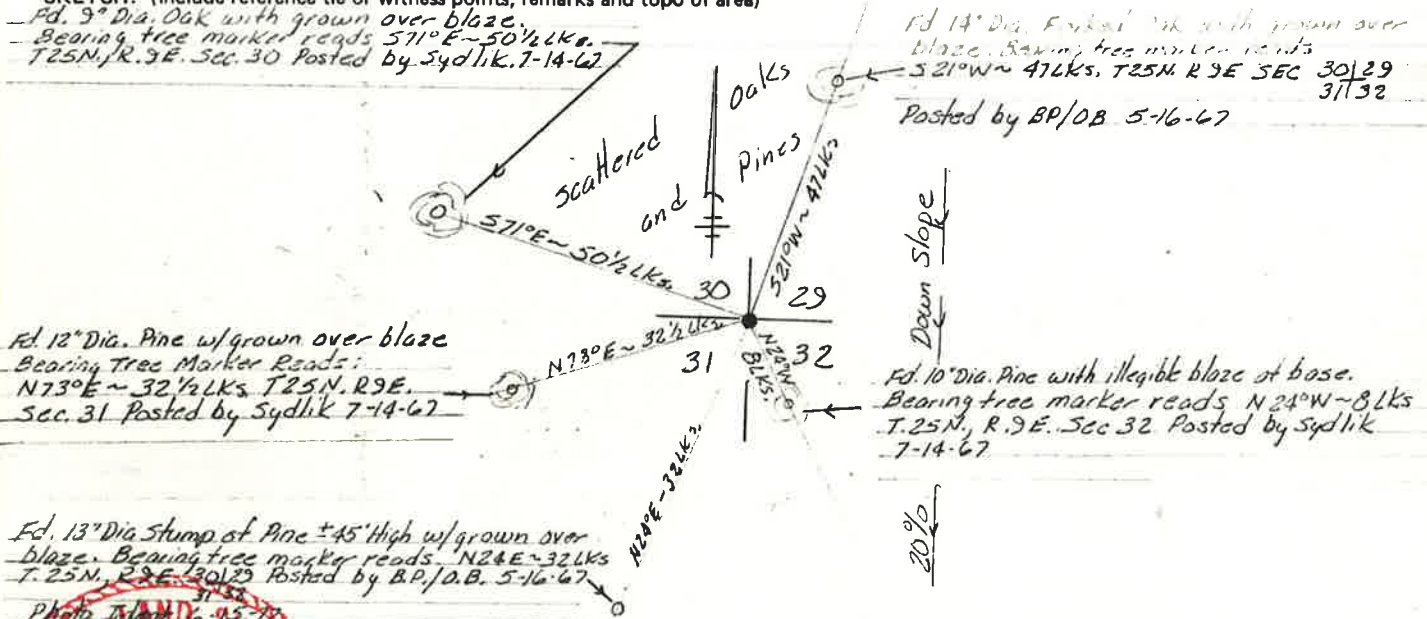 SKETCH: (Include reference tie or witness points, remarks and topo of area)
Fd. 9" Dia. Oak with grown over blaze.
Bearing tree marker reads S71°E~50½Lks.
T25N., R.9E. Sec. 30 Posted by Sydlik. 7-14-67
Fd 14" Dia. Forked Oak with grown over
blaze. Bearing tree marker reads
S21°W~47LKs. T25N. R9E SEC 30|29
31|32
Posted by BP/OB 5-16-67
scattered
Oaks
and
Pines
S71°E~50½LKs.
S21°W~47LKs
30
29
31
32
Down Slope
20%
Fd. 12" Dia. Pine w/grown over blaze
Bearing Tree Marker Reads:
N73°E~32½LKs T25N. R9E.
Sec. 31 Posted by Sydlik 7-14-67
N73°E~32½Lks.
N24°W
8LKS.
Fd. 10" Dia. Pine with illegible blaze at base.
Bearing tree marker reads N24°W~8LKs
T.25N., R.9E. Sec 32 Posted by Sydlik
7-14-67
N24°E~32LKs.
Fd. 13" Dia Stump of Pine ±45' High w/grown over
blaze. Bearing tree marker reads N24E~32LKs
T. 25N., R.9E. 30|29 Posted by B.P./O.B. 5-16-67
31 32
Photo
LAND